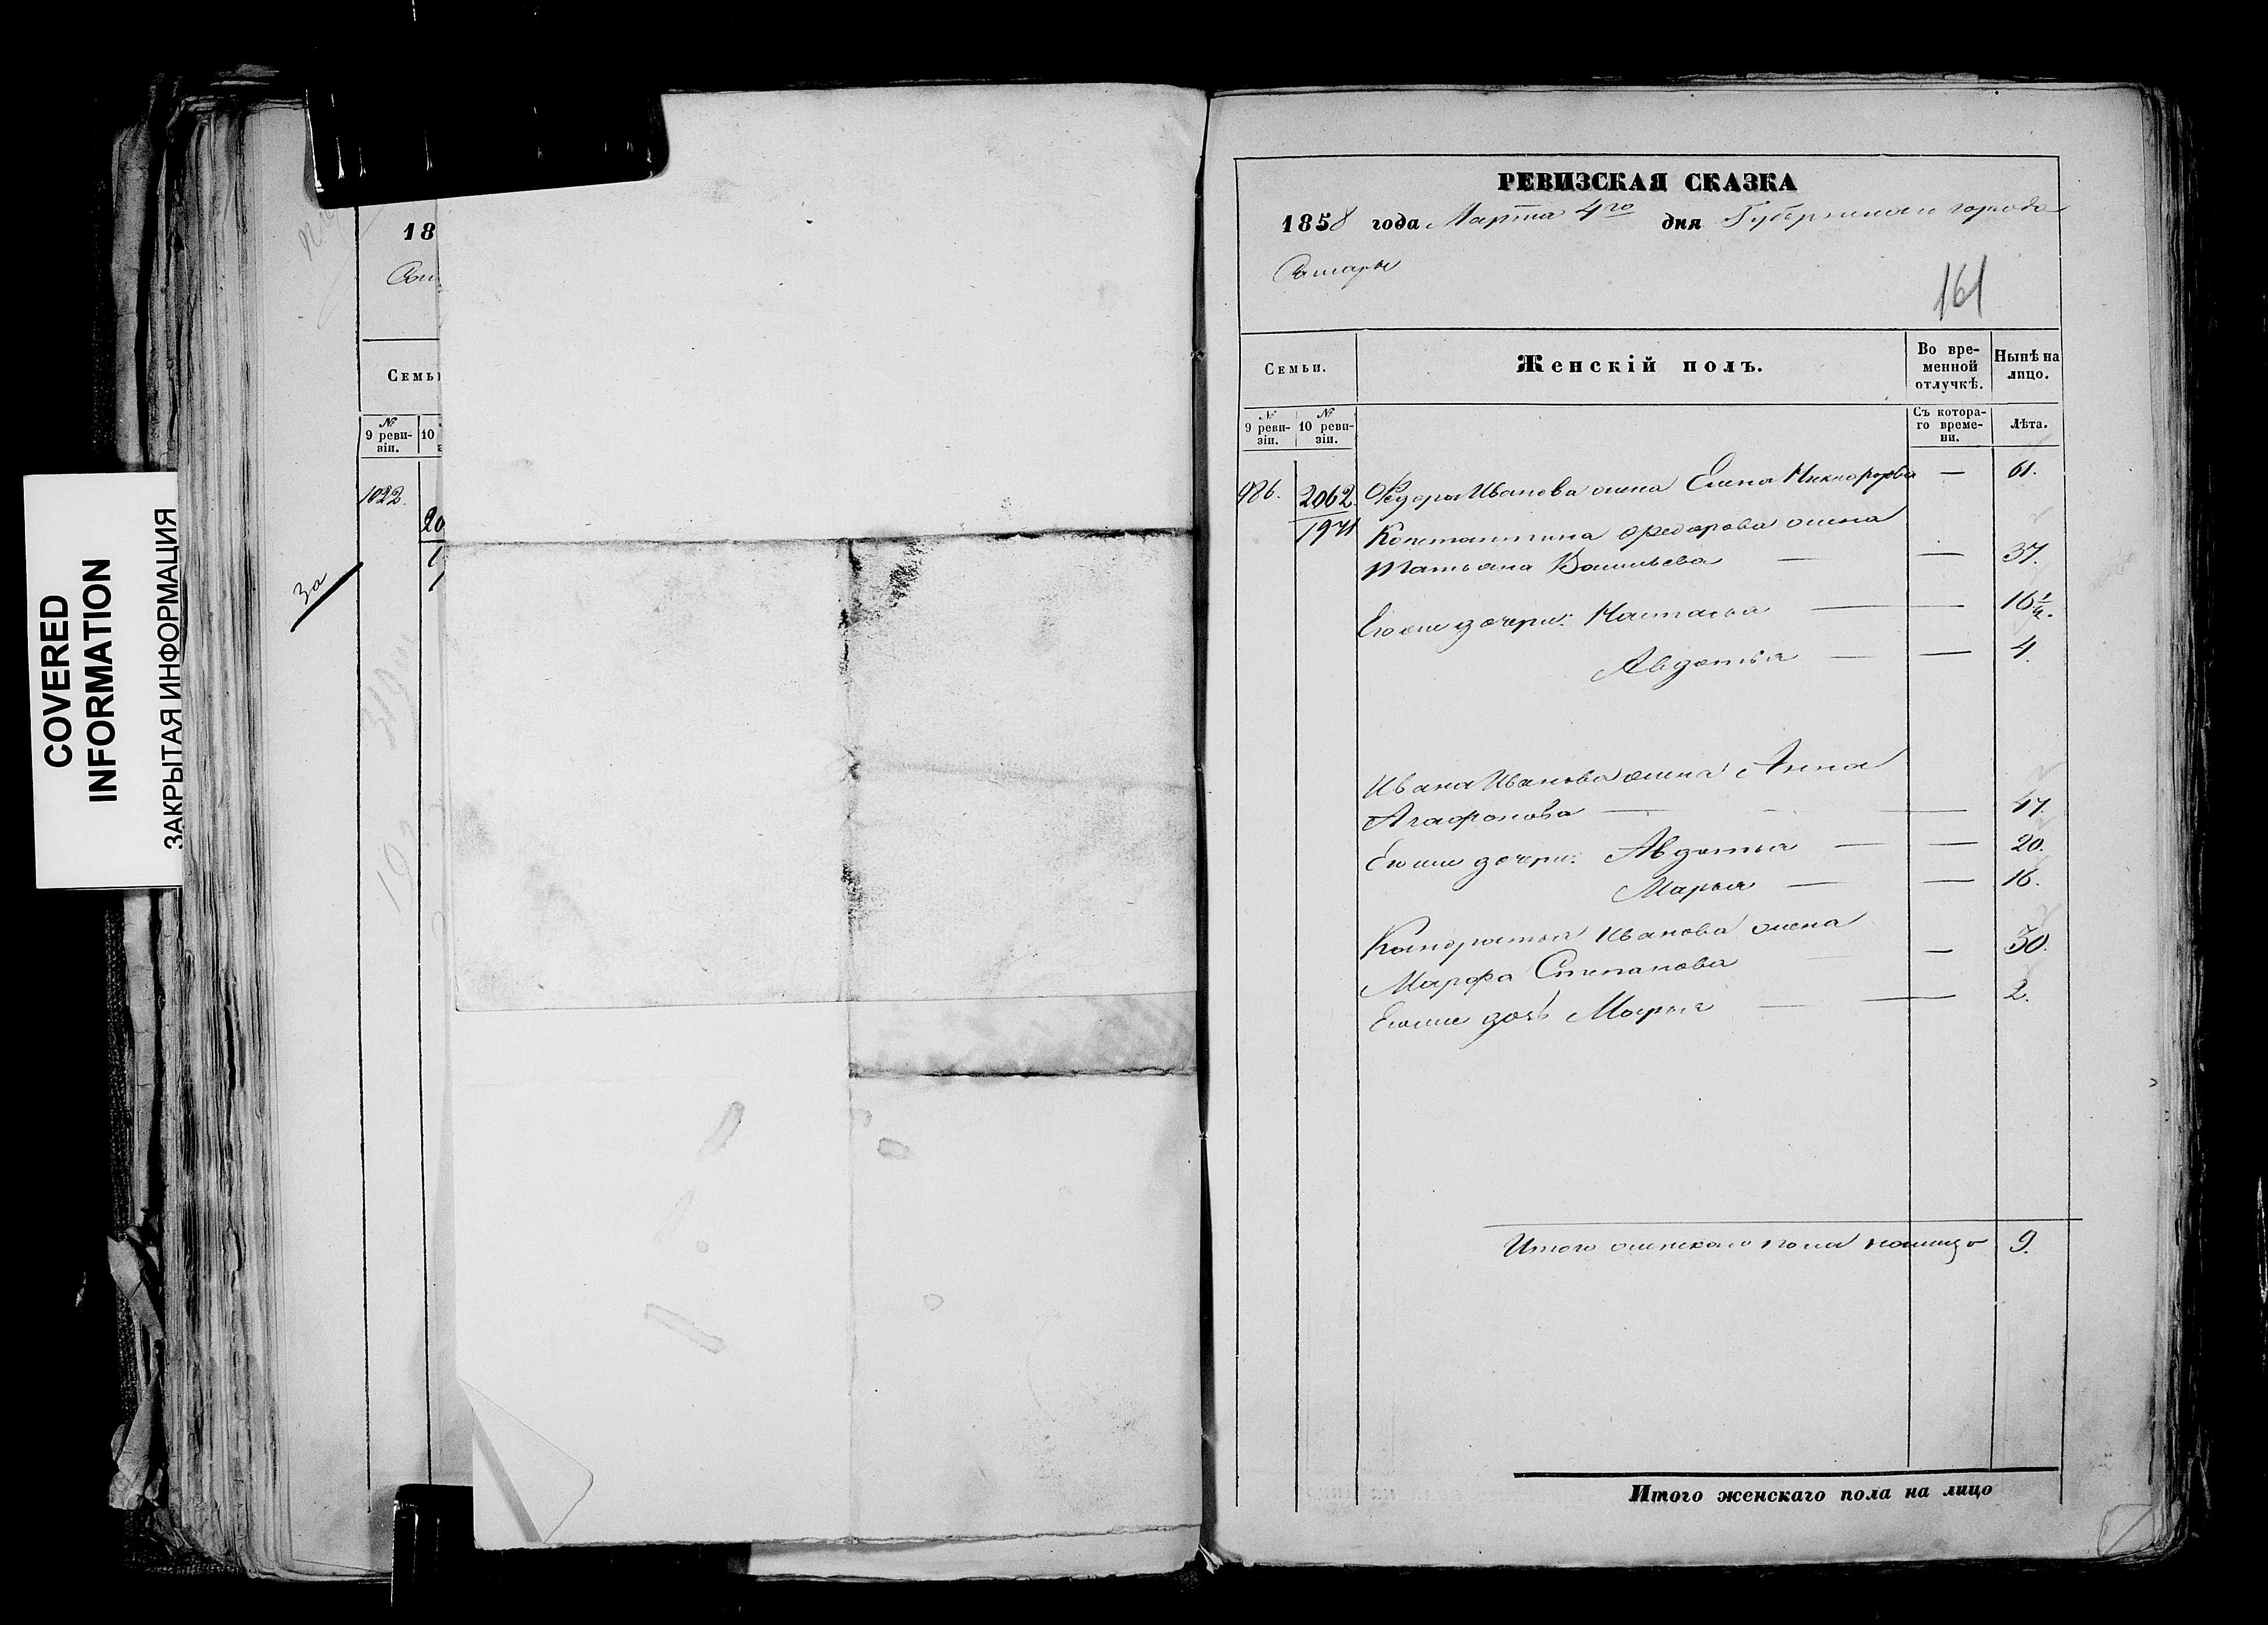 COVERED
INFORMATION
ЗАКРЫТАЯ ИНФОРМАЦИЯ
18
Семьи
№
9 реви-
зіи.
10
1022.
20
1
1
За
РЕВИЗСКАЯ СКАЗКА
1858 года Марта 4го дня Губернскаго города
Самары
161
Семьи.
Женскій полъ.
Во вре-
менной
отлучкѣ.
Нынѣ на
лицо.
№
9 реви-
зіи.
№
10 реви-
зіи.
Съ котора-
го време-
ни.
Лѣта.
986. 2062 Федора Иванова жена Елена Никифорова — 61.
1971 Константина Федорова жена
Татьяна Васильева — — 37.
Его же дочери: Настасья — 16½.
Авдотья — — 4.
Ивана Иванова жена Анна
Агафонова — — 47.
Его же дочери: Авдотья — — 20.
Марья — — 16.
Кондратья Иванова жена
Марфа Степанова — 30.
Его же дочь Марья — — 2.
Итого женскаго пола налицо 9.
Итого женскаго пола на лицо